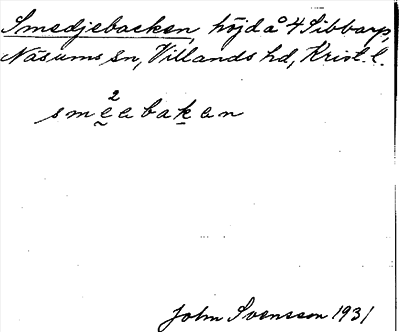 Smedjebacken, höjd å 4 Sibbarp,
Näsums sn, Villands hd, Krist. l.
2
smeebakan
John Svensson 1931